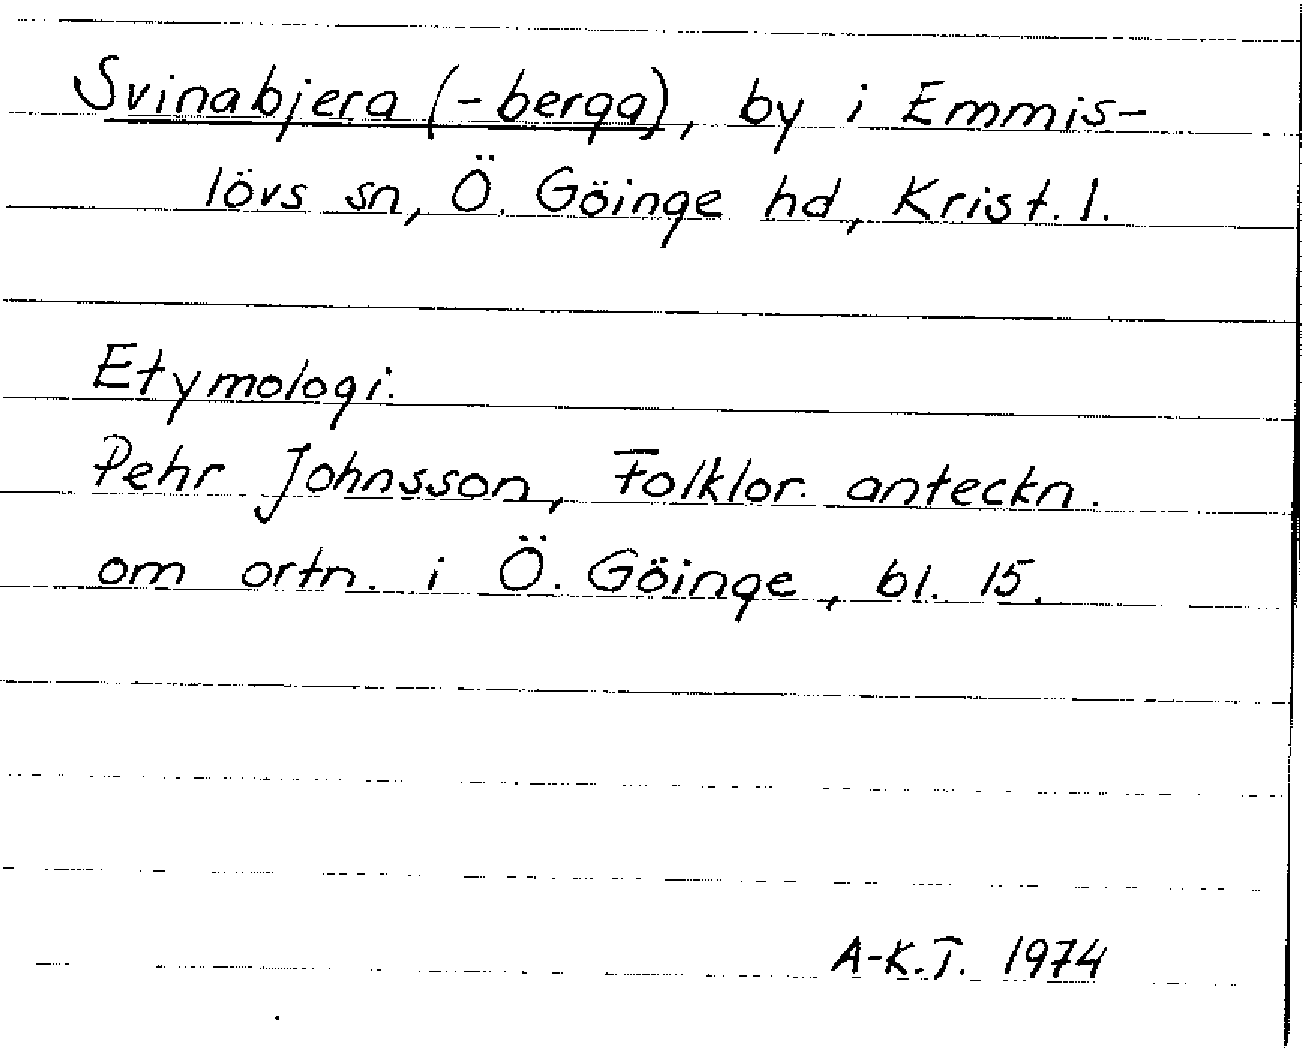 Svinabjera (-berga), by i Emmis-
lövs sn, Ö. Göinge hd, Krist. l.
Etymologi.
Pehr Johnsson, Folklor. anteckn.
om ortn. i Ö. Göinge, bl. 15.
A-K.T. 1974